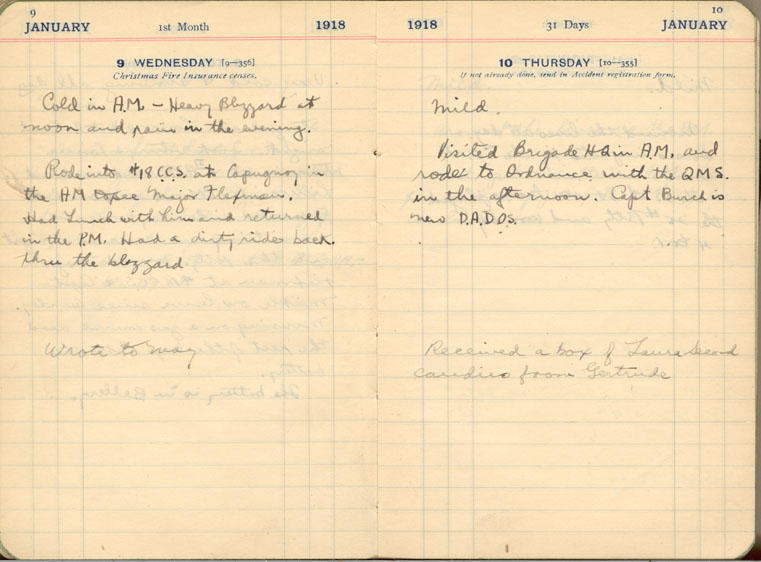 9
JANUARY 1st Month 1918
9 WEDNESDAY [9—356]
Christmas Fire Insurance ceases.
Cold in A.M. – Heavy Blizzard at
noon and rain in the evening.
Rode into #18 C.C.S. at Lapugnoy in
the AM Major Flexman.
Had Lunch with him and returned
in the P.M. Had a dirty rides back
thru the blizzard
Wrote to May
10
1918 31 Days JANUARY
10 THURSDAY [10—355]
If not already done, send in Accident registration form.
Mild.
Visited Brigade HQ in A.M. and
rode to Ordnance with the Q.M.S.
in the afternoon. Capt Burch is
new D.A.D.O.S.
Received a box of Laura Secord
candies from Gertrude